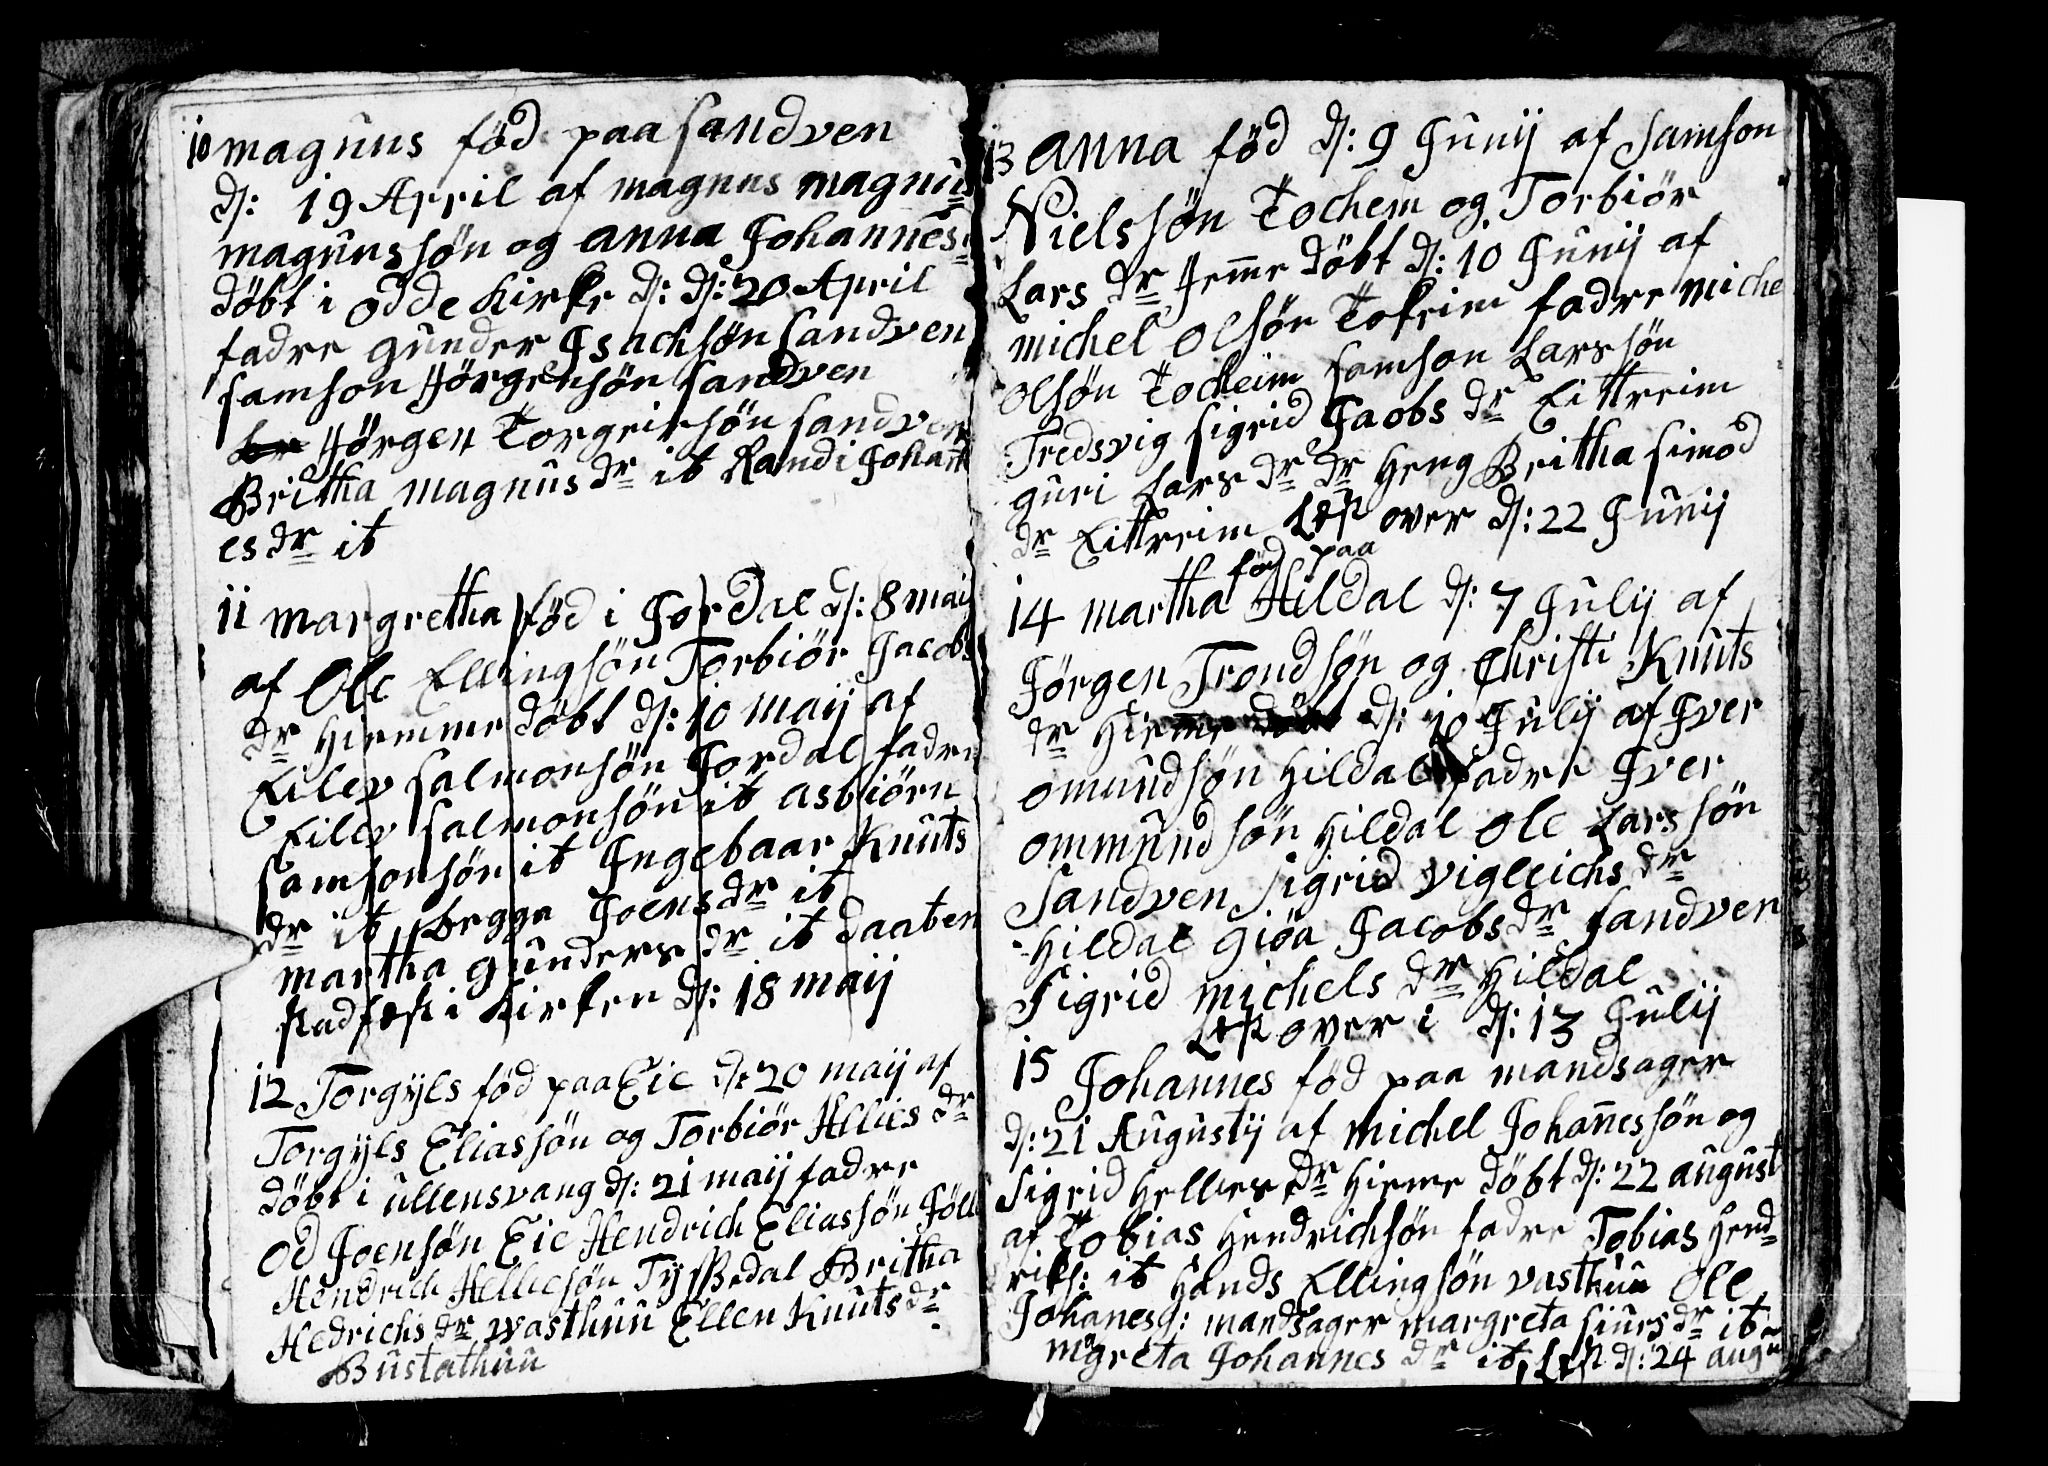 10 magnus föd paa sandven
ds: 19 April af magnus magnus
magnussøn og anna Johannes:
döbt i odde Kirke ds: ds: 20 April
fadre gunder Isachsøn sandven
samson Hörgensøn sandven
Hörgen Torgeirsøn sandven
Britha magnus dr it Randi Johann
es dr it
11 margretha föd i Jordal ds: 8 maij
af Ole Ellingsön Torbiör Jacobs
dr hiemme döbt ds: 10 maij af
Eilev salmonsön Jordal fadre
Eilev salmonsön it asbiörn
samsonsön it Ingebaar Knuts
dr it Begga Joensdr it
martha gunders dr it daaben
stadfest i Kirken ds: 18 maij
12 Torgijls föd paa Eie ds: 20 maij af
Torgijls Eliassön og Torbiör Hellies dr
döbt i ullensvang ds: 21 maij fadre
Od Joensön Eie Hendrich Eliassön Föll
Hendrich Helliesön Tyssedal Britha
Hedrichs dr wasthuu Ellen Knutsdr
Bustathuu
13 anna föd ds: 9 Junij af Samson
Nielssön Tochem og Torbiör
Lars dr Hemme döbt ds: 10 Junij af
michel olsön Tokeim fadre miche
olsön Tocheim samson Larssön
Tredsvig sigrid Jaobs dr Eittreim
guri Lars dr dr Heng Britha simod
dr Eittreim Lest over ds: 22 Junij
föd paa
14 martha Hildal ds: 7 Julij af
Jörgen Trondsøn og Christi Knuts
dr hiemme döbt ds: 10 Julij af Iver
omundsøn Hildal fadre Iver
ommundsön Hildal Ole Larssön
Sandven Sigrid vigleichs dr
Hildal giöa Jacobsdr sandven
Sigrid michels dr Hildal
Lest over i ds: 13 Julij
15 Johannes föd paa mandsager
ds: 21 Augustij af michel Johannessön og
Sigrid Hellies dr hieme döbt ds: 22 august
af Tobias Hendrichsön fadre Tobias Hend=
riks: it Hands Ellingsön vasthuu Ole
Johanesö: mandsager margreta siurs dr it
margreta Johannes dr it, Lest ds: 24 aug